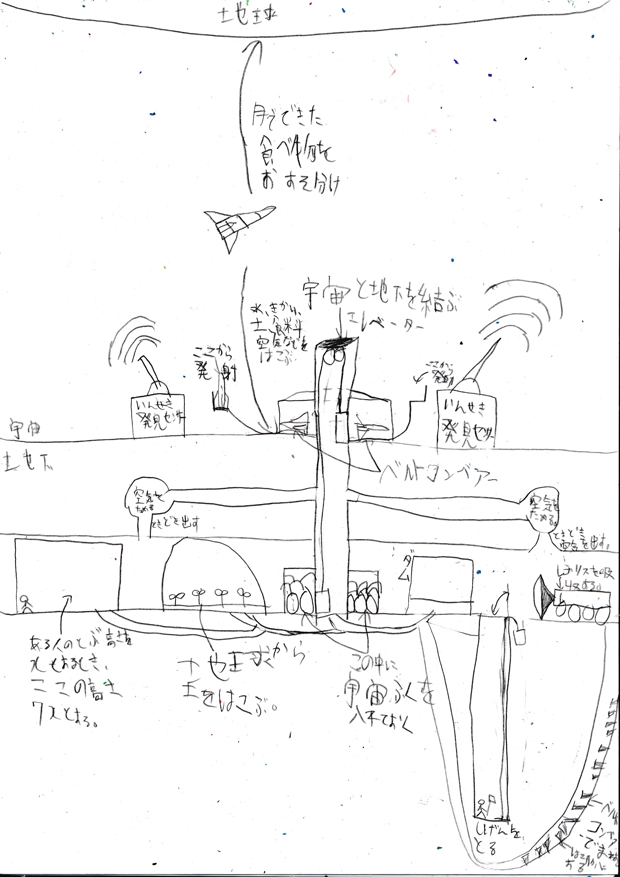 地球
月でできた
食べ物を
おすそ分け
宇宙と地下を結ぶ
エレベーター
水、きかい、
土、食料
空気などを
はこぶ
ここから
発射
ここから
発射
いんせき
発見センサー
いんせき
発見センサー
宇宙
地下
ベルトコンベアー
空気を
ためる
ときどき出す
空気を
ためる。
ときどき
空気を出す。
ダム
ある人のとぶ高さを
xとするとき、
ここの高さ
7xとする。
地球から
土をはこぶ。
この中に
宇宙ふくを
入れておく
しげんを
とる
ベルト
コンベア